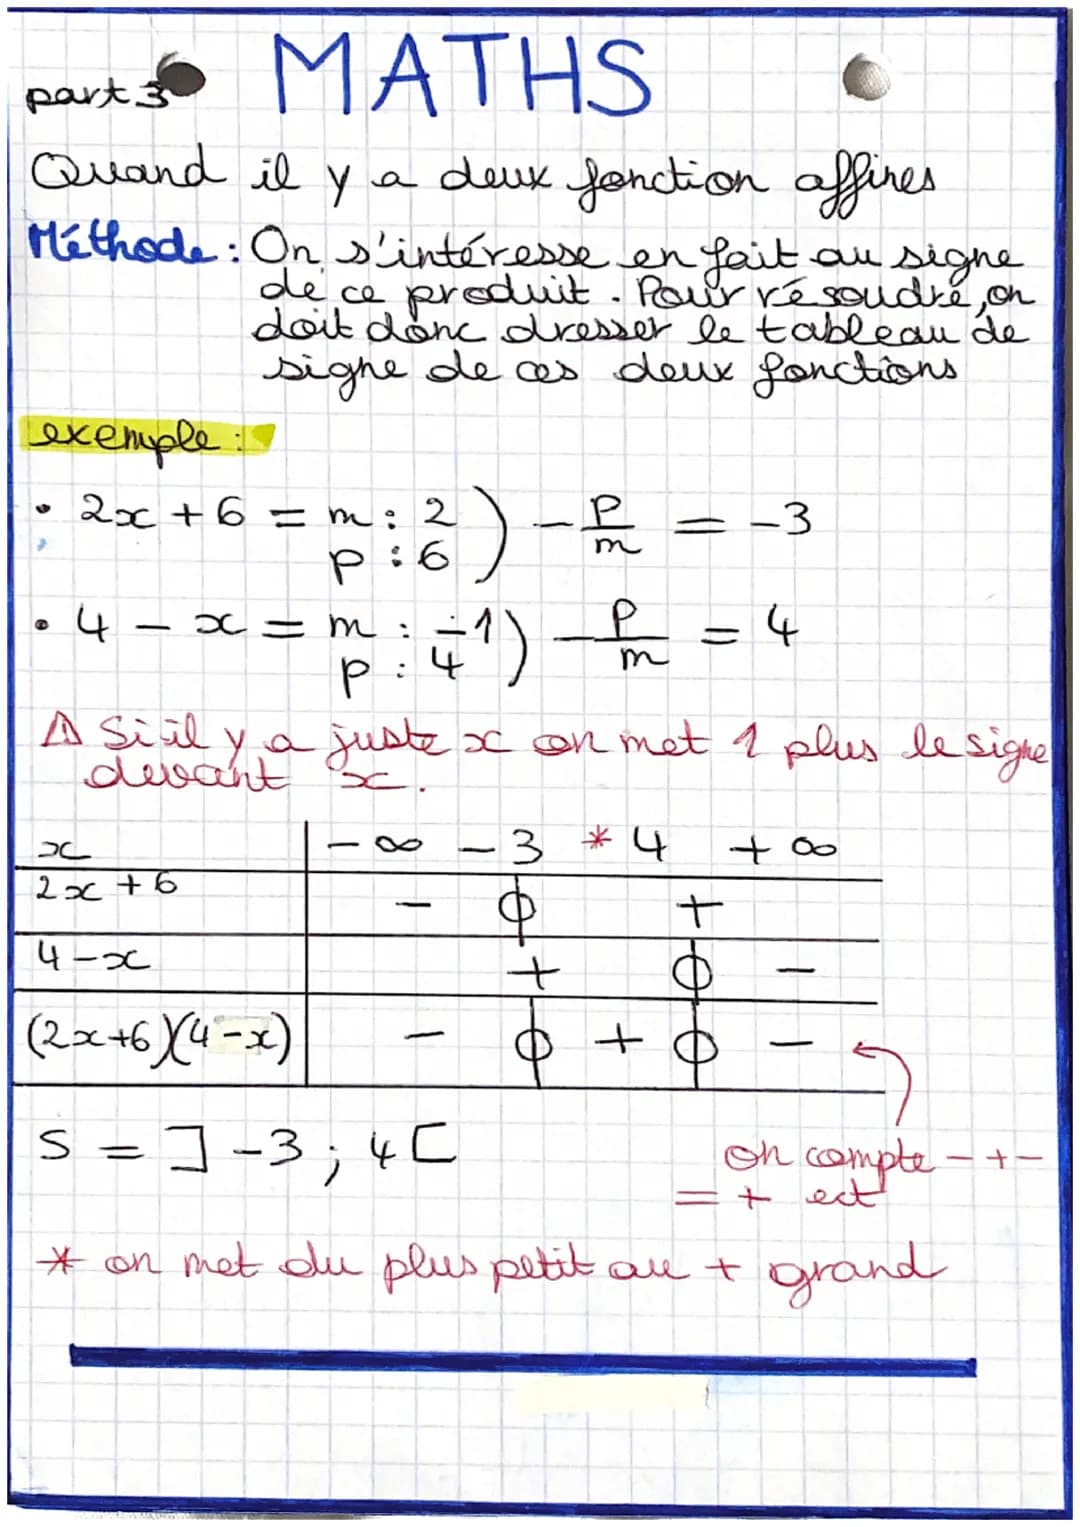 MATHS
part 3
Quand il y a deux fonction affines
Méthode : On s'intéresse en fait au signe
de ce produit. Pour résoudre, on
doit donc dresser le tableau de
signe de ces deux fonctions
exemple :
• 2x + 6 = m : 2 ) - p/m = -3
p : 6
• 4 - x = m : -1 ) - p/m = 4
p : 4
⚠ Si il y a juste x on met 1 plus le signe
devant x.
x | -∞ -3 * 4 +∞
2x + 6 | - ϕ +
4 - x | + ϕ -
(2x+6)(4-x) | - ϕ + ϕ -
S = ]-3 ; 4[
on compte - + -
= + ect
* on met du plus petit au + grand